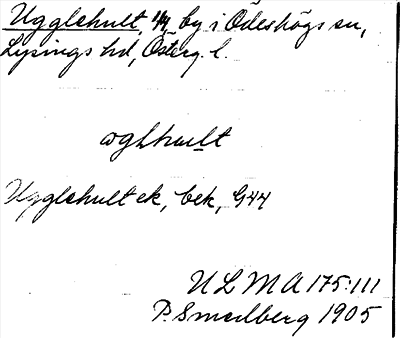 Ugglehult, 1/4, by i Ödeshögs sn,
Lysings hd, Österg. l.
ωghhult
Ugglehult ek, bek, G44
ULMA 175:111
P. Smedberg 1905